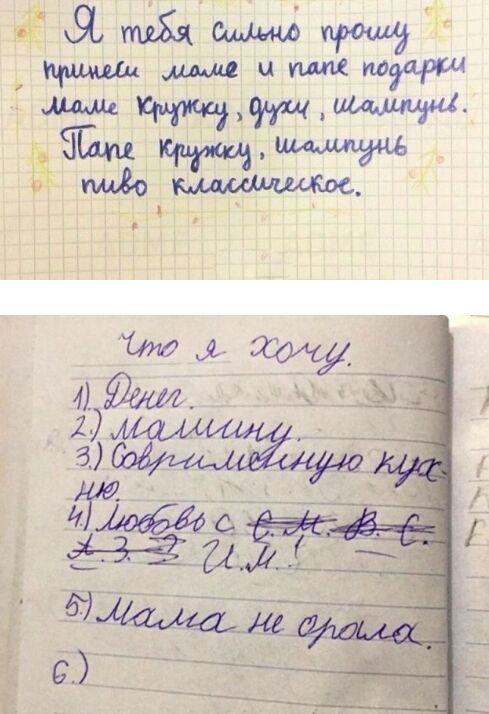 Я тебя сильно прошу
принеси маме и папе подарки
маме кружку, духи, шампунь.
Папе кружку, шампунь
пиво классическое.
Что я хочу.
1) Денег.
2.) машину.
3.) Совриménную кух-
ню.
4.) любовь с С. М. В. С.
А. З. И.М.!
5.) мама не орала.
6.)